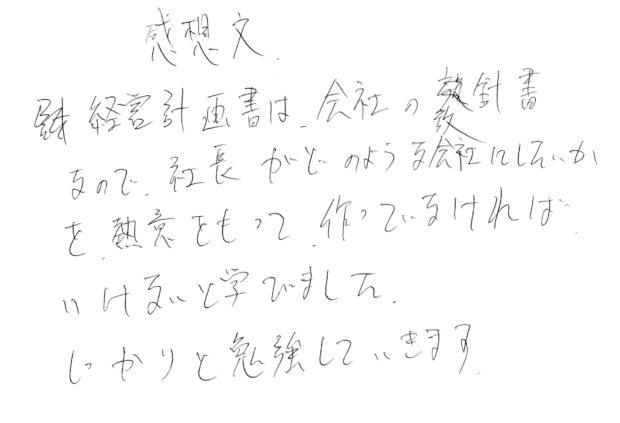 感想文.
経営計画書は、会社の 針書
なので、社長がどのような会社にしたいか
を、熱意をもって、作っていなければ
いけないと学びました.
しっかりと勉強していきます.